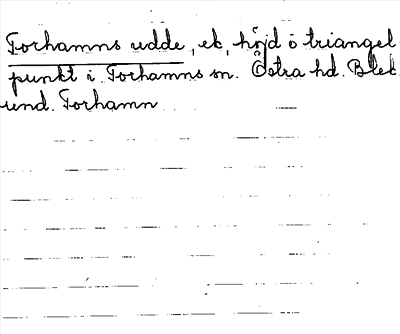 Torhamns udde, ek, höjd o triangel
punkt i Torhamns sn. Östra hd. Blek
und. Torhamn